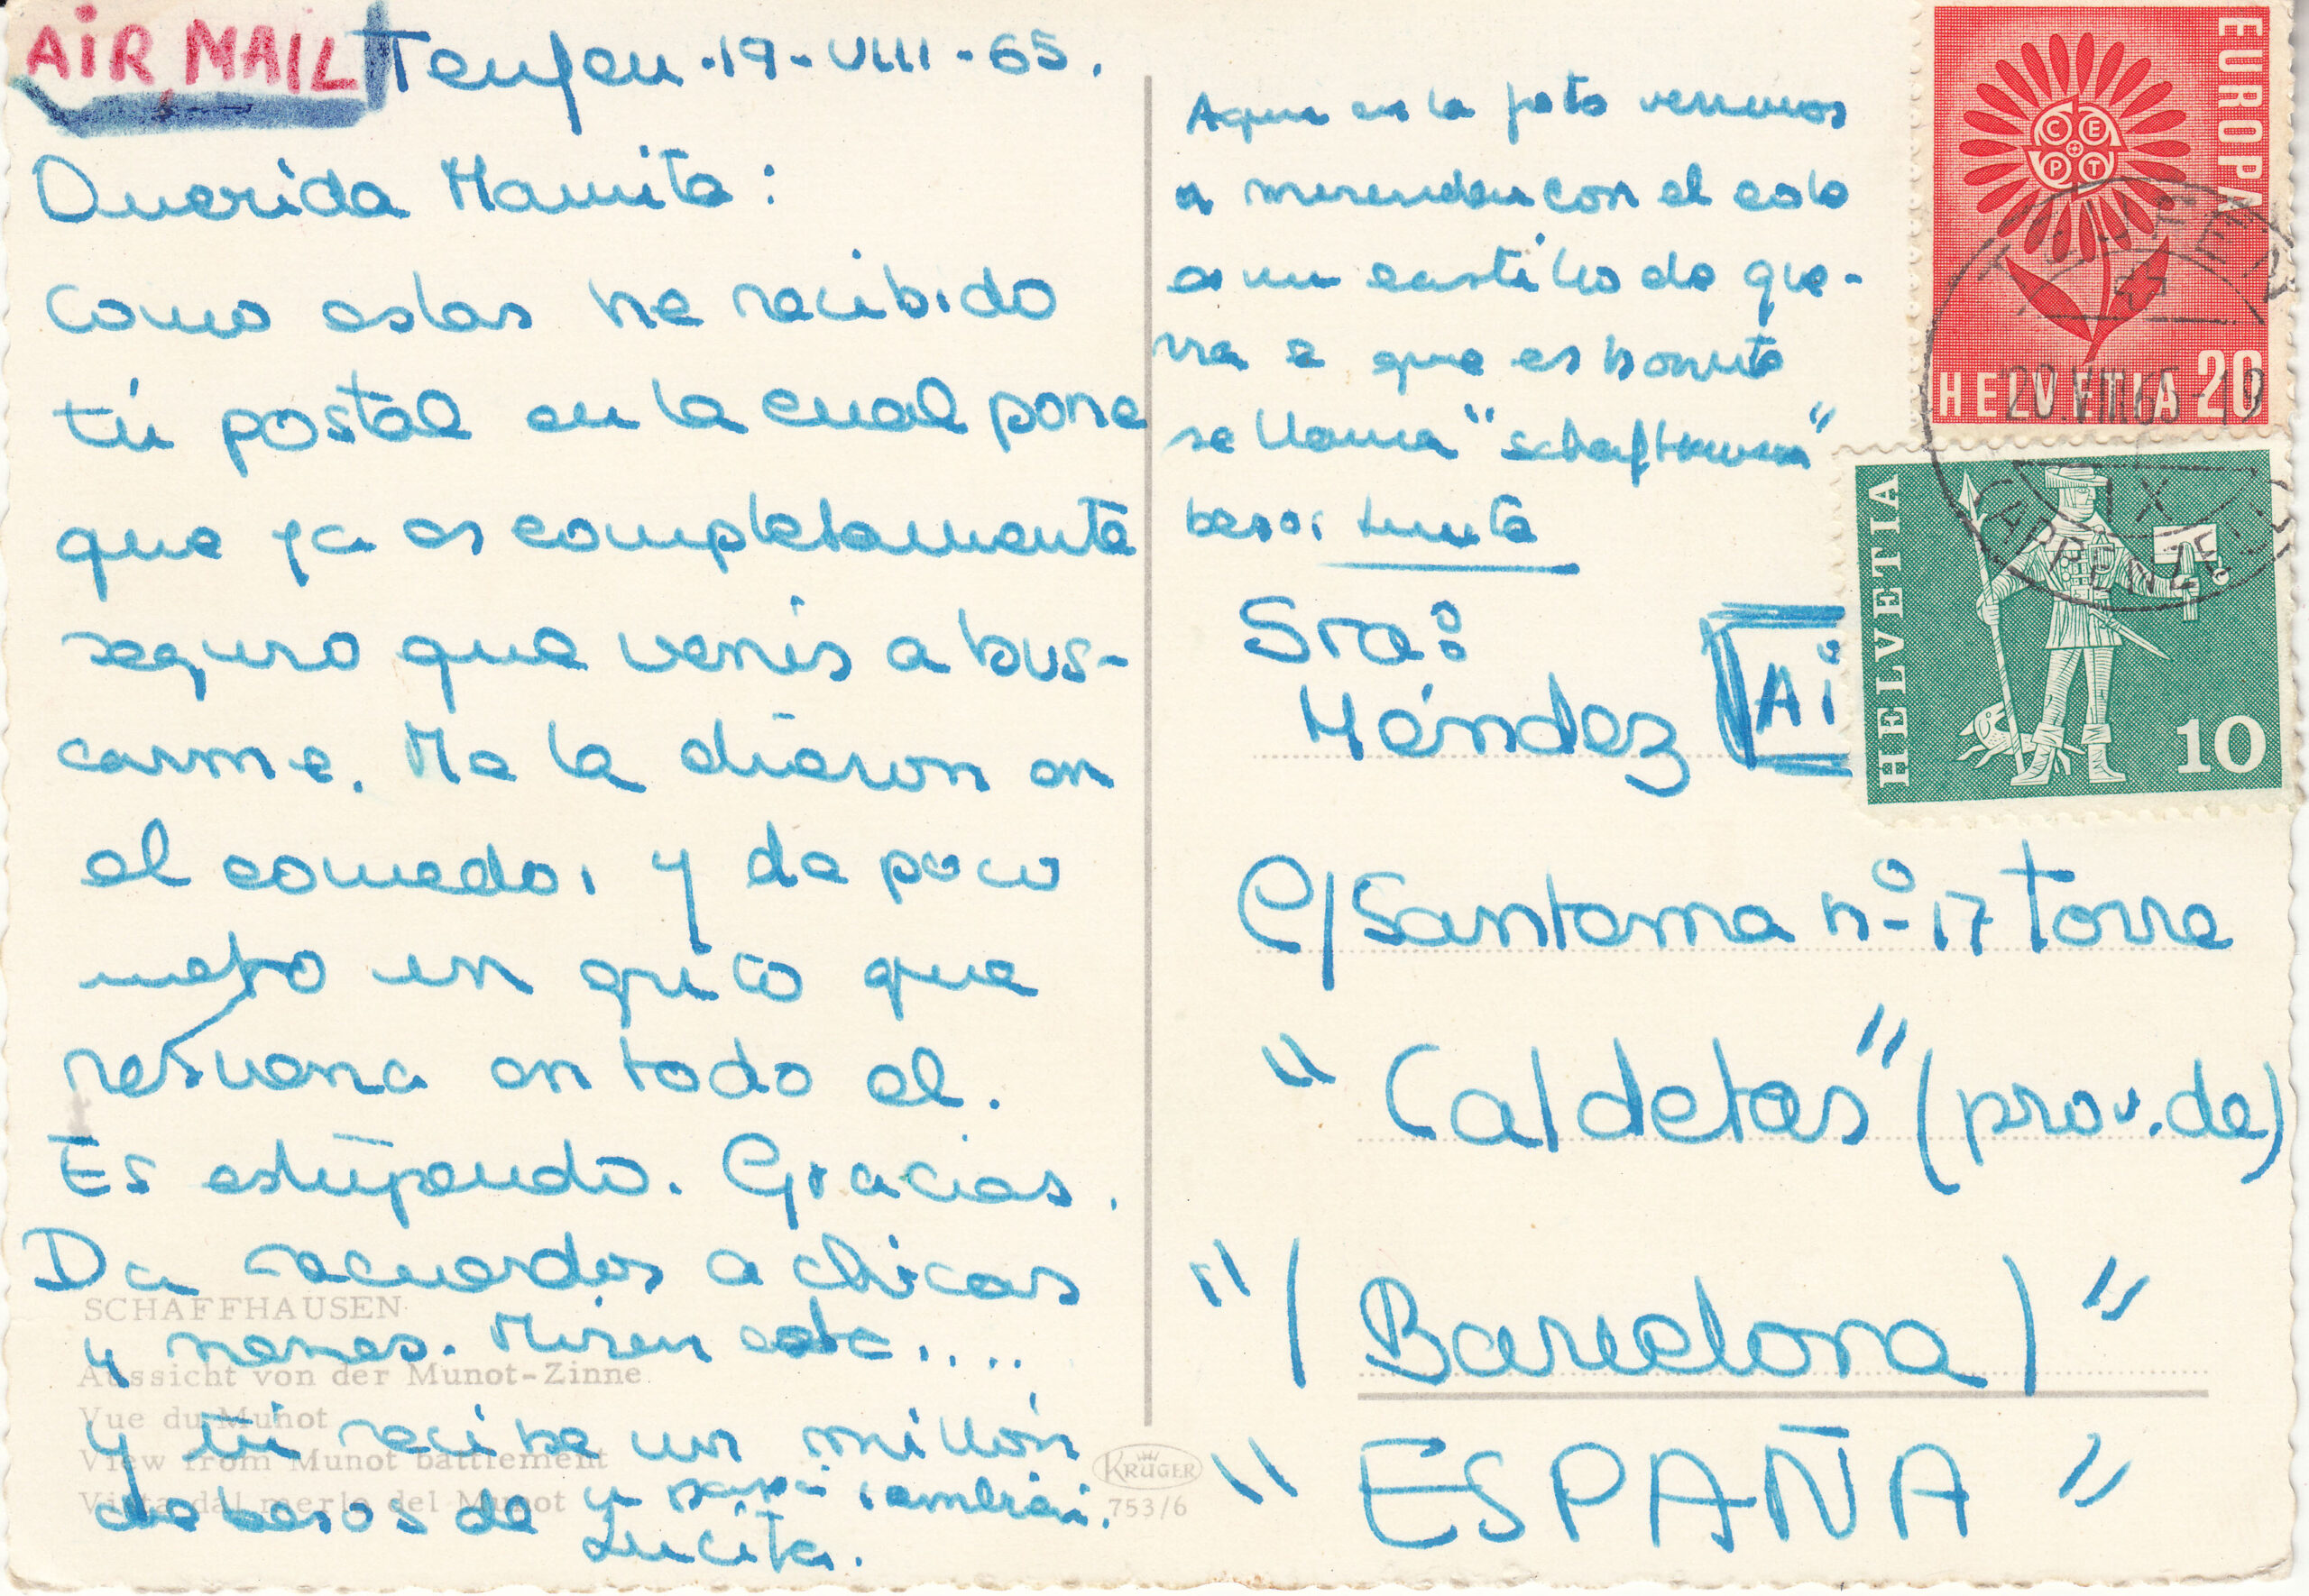 AIR MAIL
Teufen · 19 - VIII - 65.
Querida Mamita:
como estas he recibido
tú postal en la cual pone
que ya es completamente
seguro que venis a bus-
carme. Me la dieron en
el comedor y de poco
meto un grito que
resuena en todo el.
Es estupendo. Gracias.
Da recuerdos a chicas
y nenes. Miren este....
y tú recibe un millón
de besos de
y papá tambien.
Lucita.
SCHAFFHAUSEN
Aussicht von der Munot-Zinne
Vue du Munot
View from Munot battlement
Vista dal merlo del Munot
KRÜGER
753/6
Aqui en la foto venimos
a merendar con el cole
a un castillo de gue-
rra e que es bonito
se llama "schaffhausen"
besos Lucita
Sra:
Méndez
Ai
C/Santema nº 17 torre
"Caldetas" (prov. de)
"(Barcelona)"
"ESPAÑA"
EUROPA
C E P T
HELVETIA 20
TEUFEN
20.VIII.65-19
HELVETIA
10